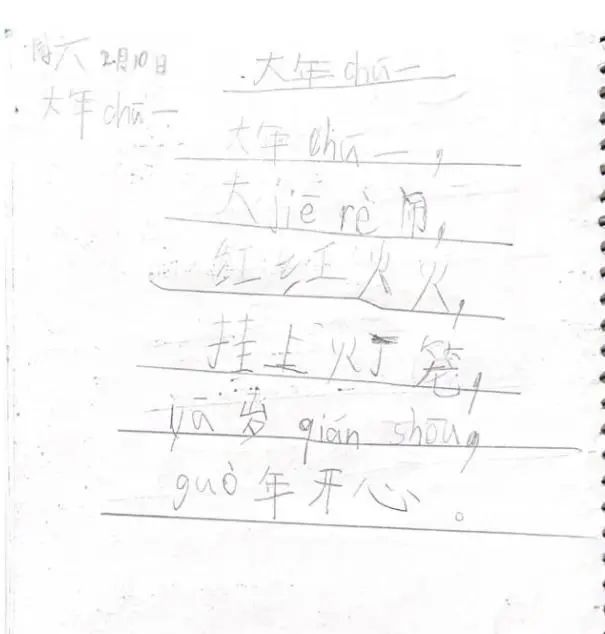 周六 2月10日
大年chū一
大年chū一
大年chū一，
大jiē rè闹，
红红火火，
挂上灯笼，
yā岁qián shōu，
guò年开心。